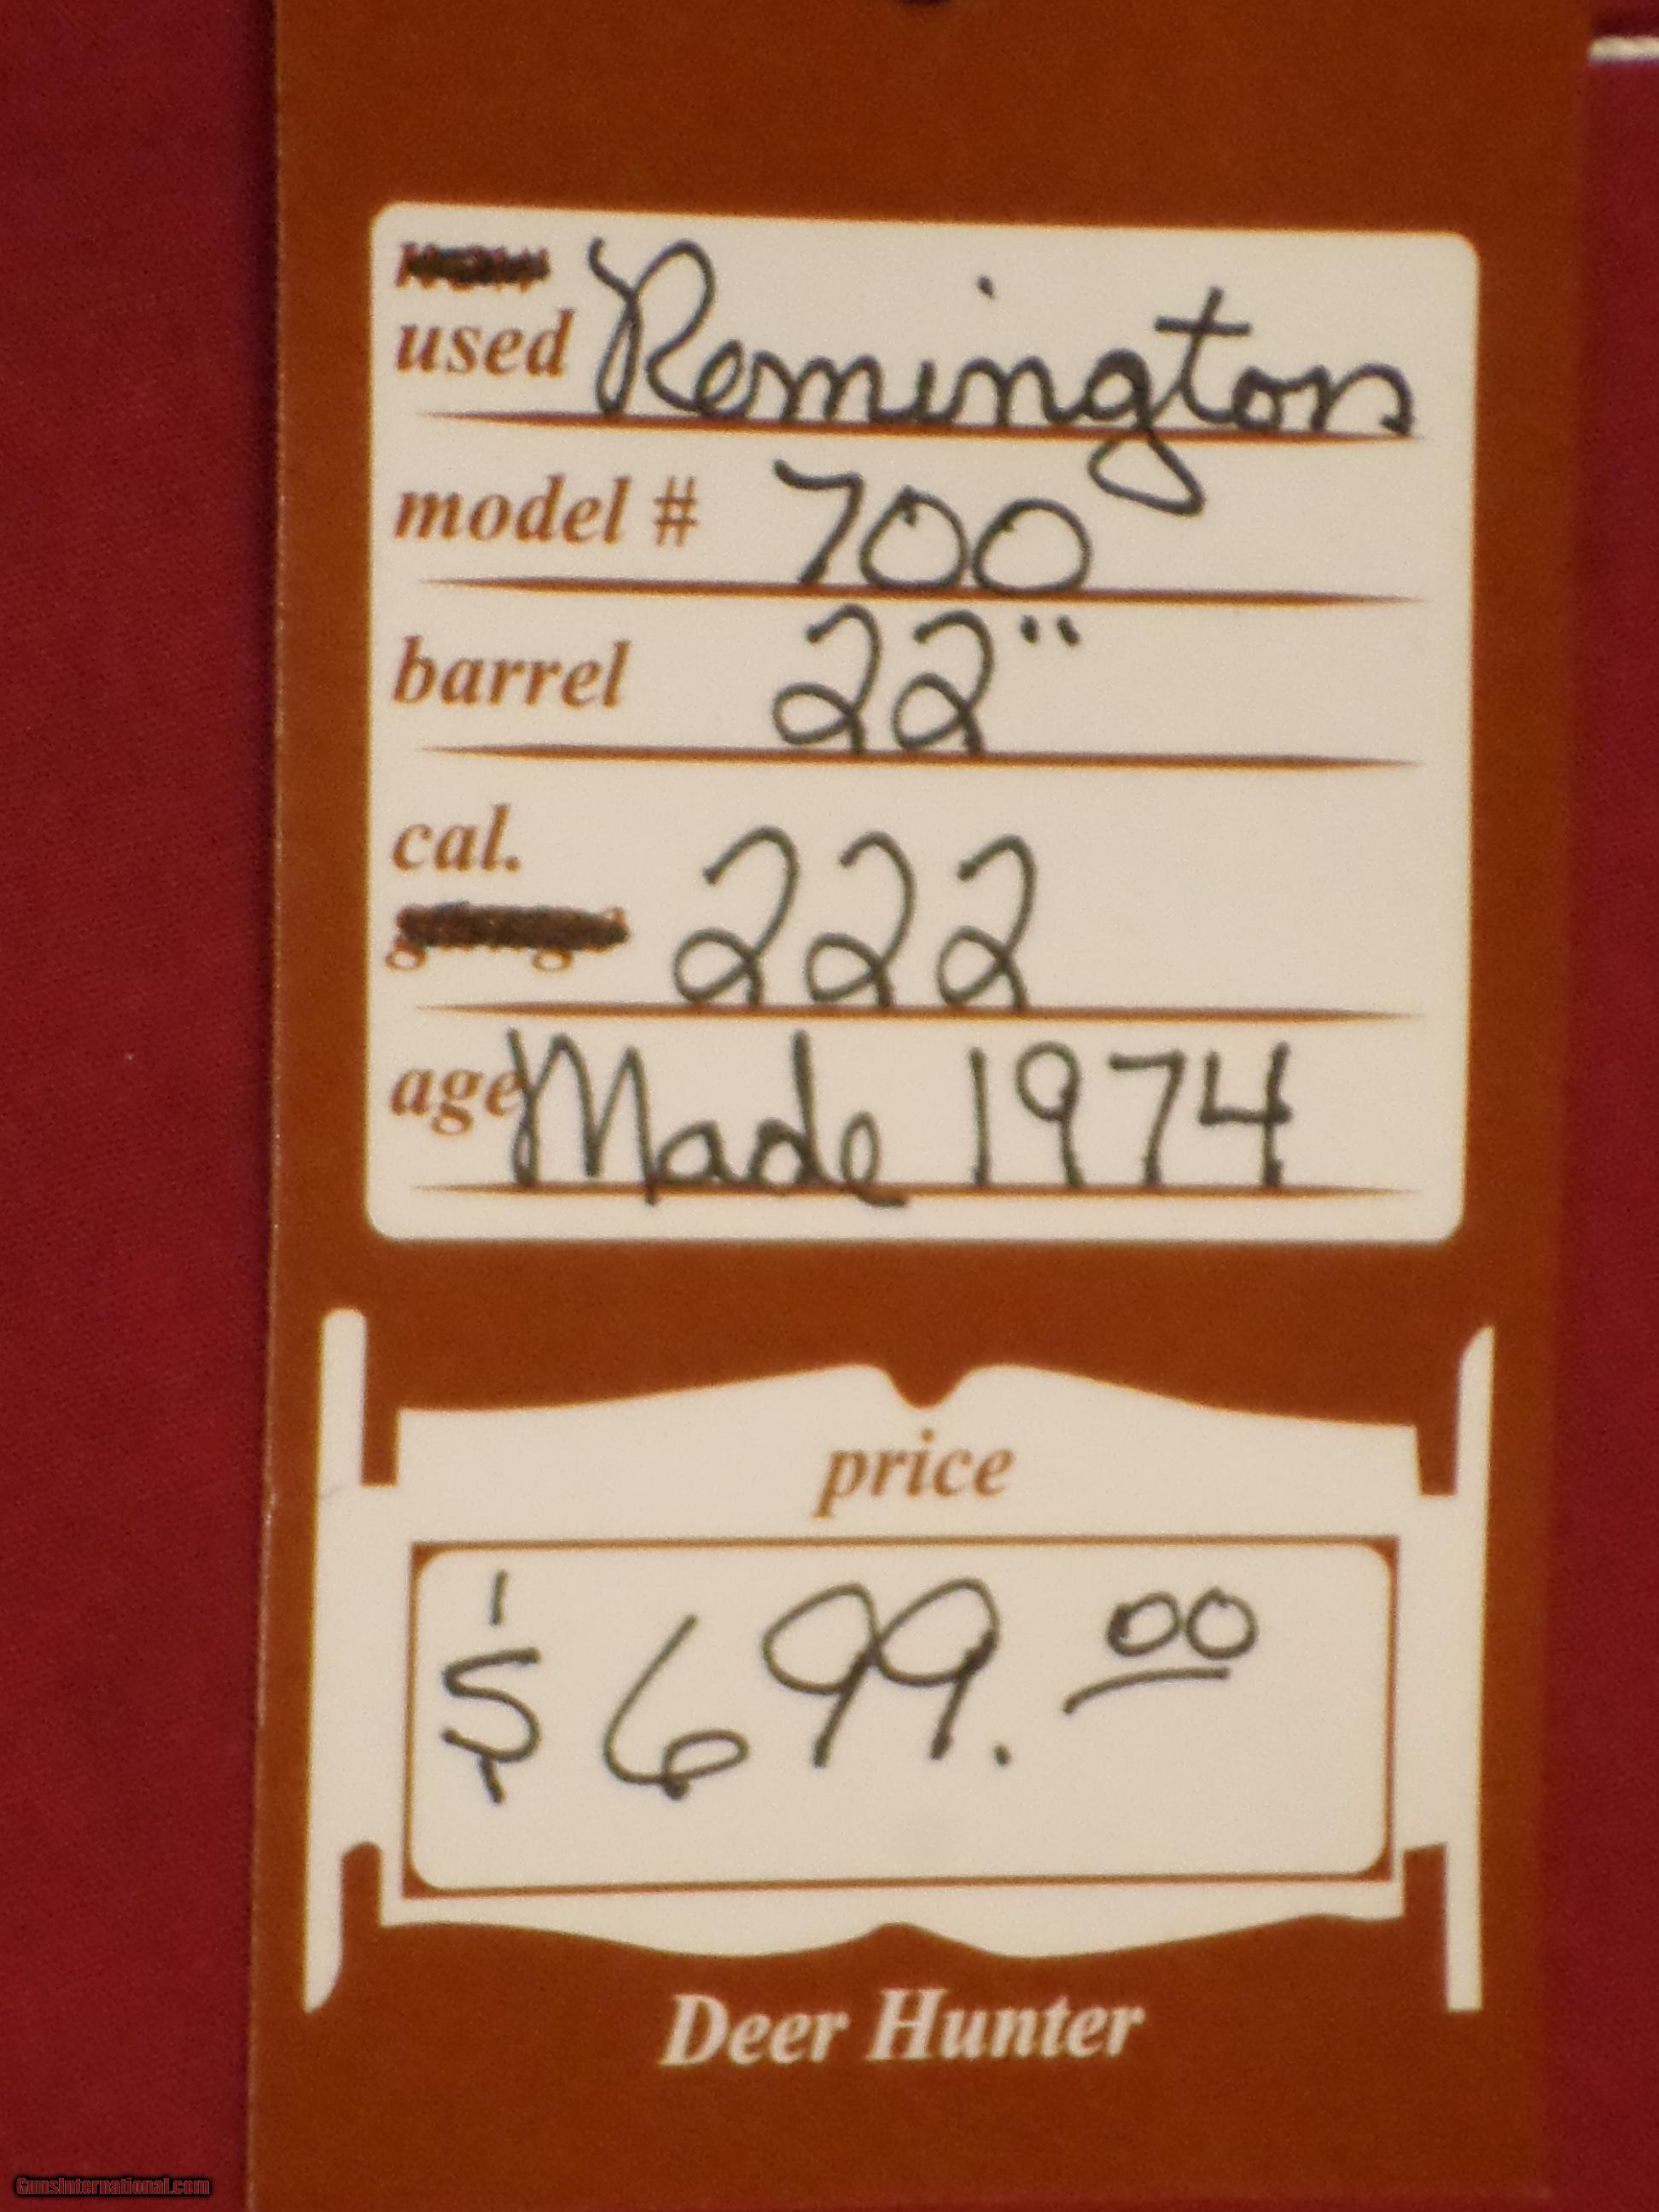 used Remington
model # 700
barrel 22"
cal.
222
age Made 1974
price
$699.00
Deer Hunter
GunsInternational.com